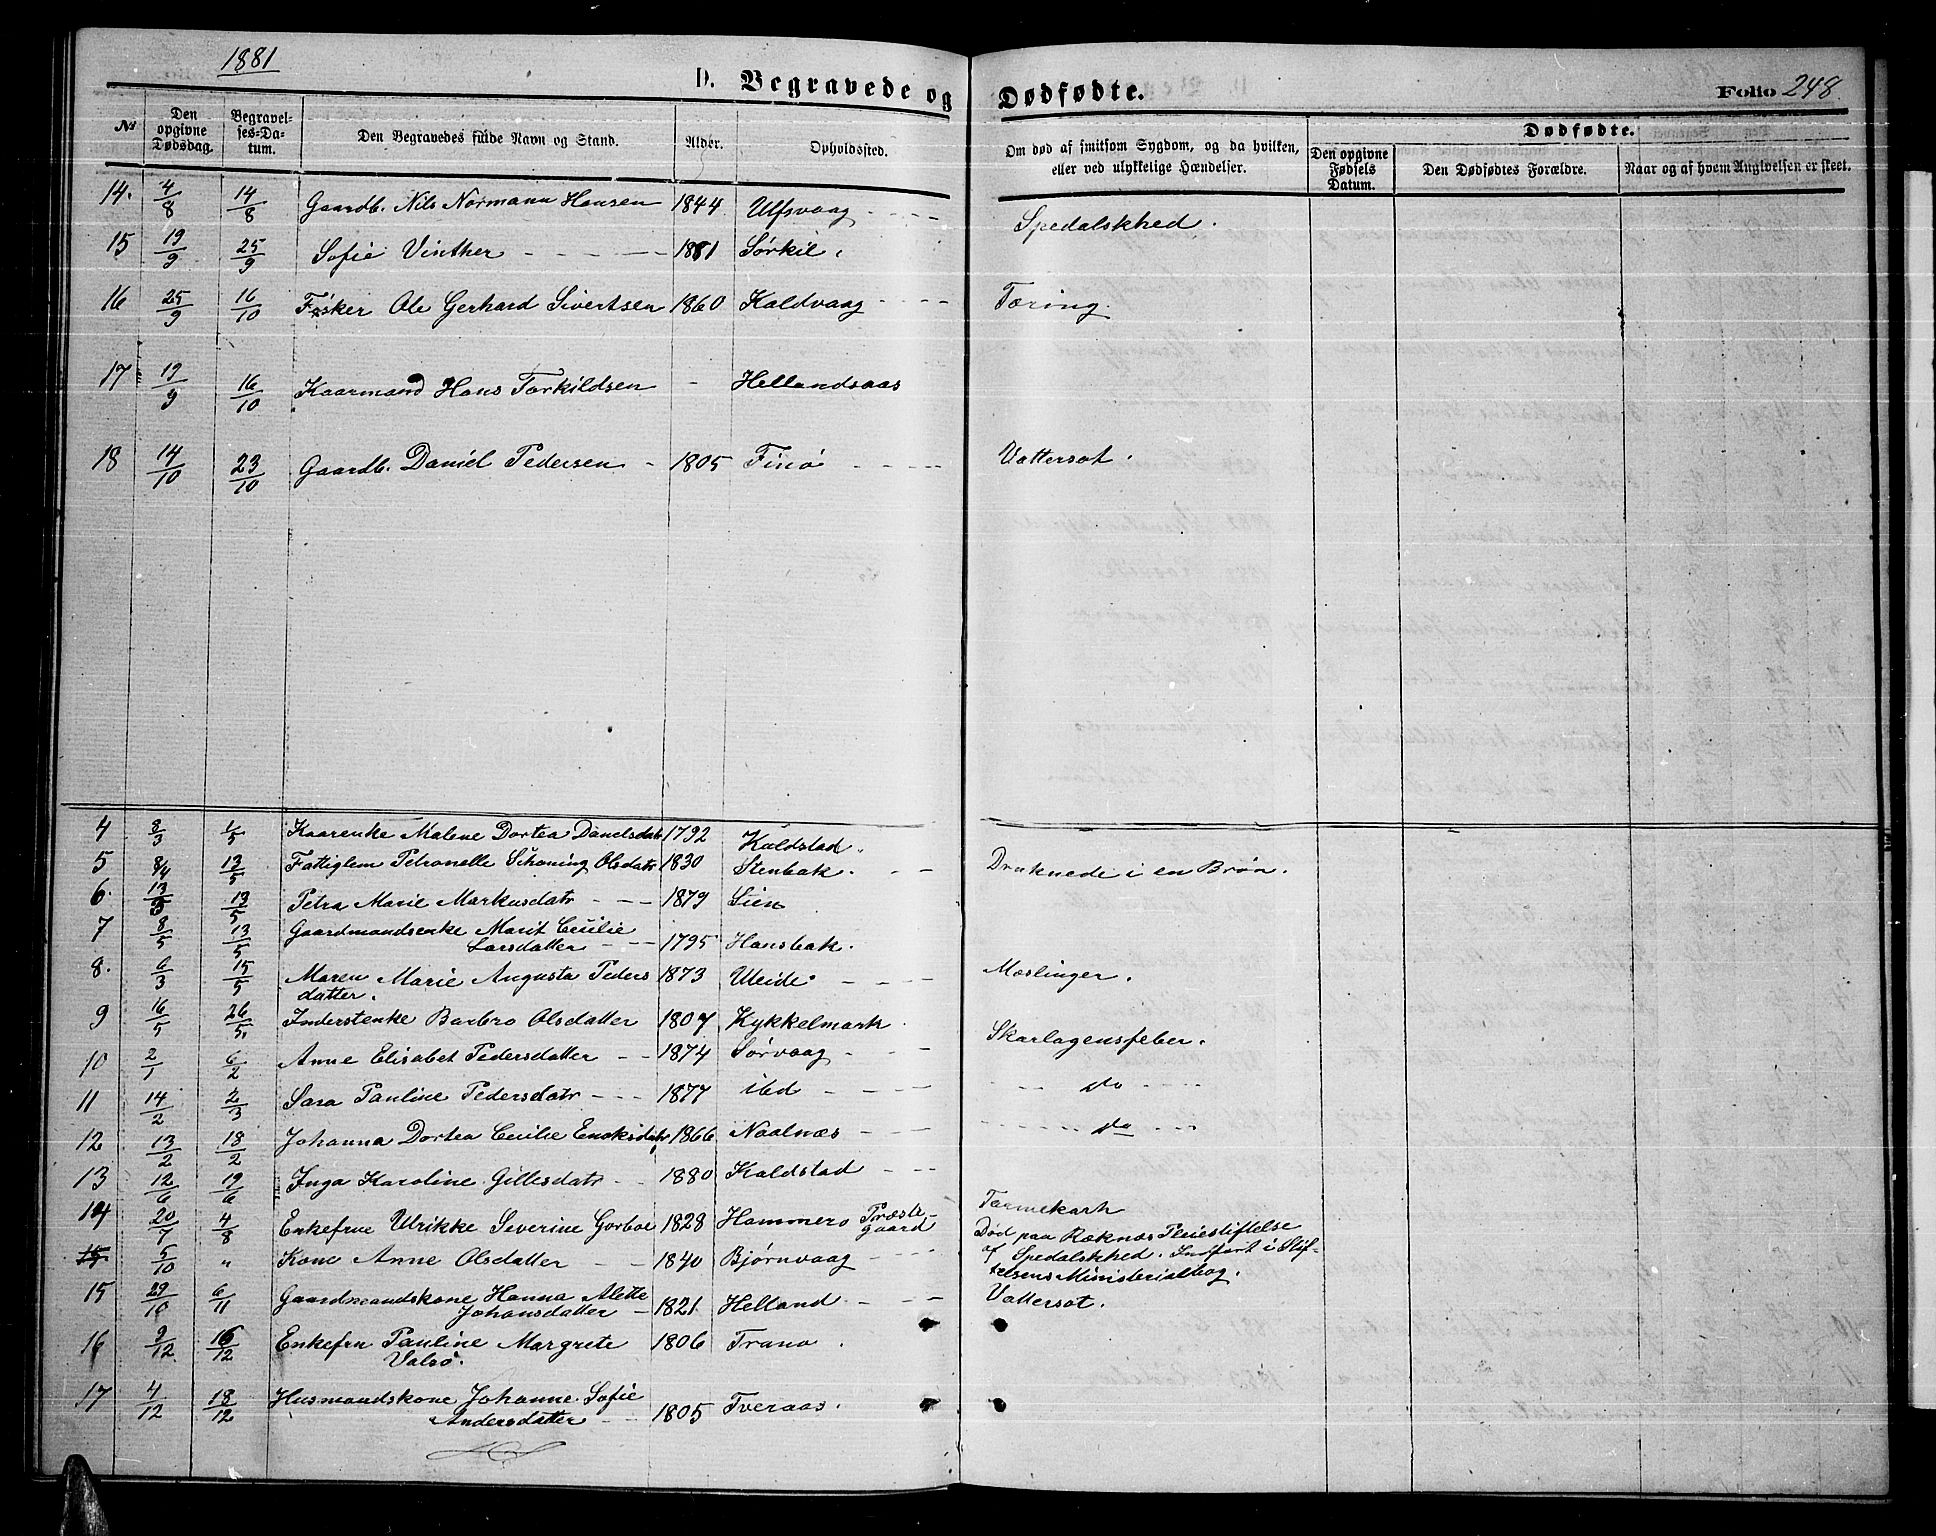 1881
D. Begravede og Dødfødte.
Folio 248
No
Den opgivne Dødsdag.
Begravelses-Datum.
Den Begravedes fulde Navn og Stand.
Alder.
Opholdssted.
Om død af smitsom Sygdom, og da hvilken, eller ved ulykkelige Hændelser.
Dødfødte.
Den opgivne Fødsels Datum.
Den Dødfødtes Forældre.
Naar og af hvem Angivelsen er skeet.
14. 4/8 14/8 Gaardb. Nils Normann Hansen 1844 Ulfsvaag - - - Spedalskhed.
15 19/9 25/9 Sofie Vinther - - - 1881 Sørkil.
16 25/9 16/10 Fisker Ole Gerhard Sivertsen 1860 Kaldvaag - - - Tæring.
17 19/9 16/10 Kaarmand Hans Torkildsen - Hellandsaas
18 14/10 23/10 Gaardb. Daniel Pedersen - 1805 Finø - - - Vattersot.
4 8/3 1/5 Kaarenke Malene Dortea Danelsdatr 1792 Kaldstad.
5 8/4 13/5 Fattiglem Petronelle Schøning Olsdatr 1830 Stenbak. - - Druknede i en Brøn.
6. 13/3 13/5 Petra Marie Markusdatr - - - 1879 Sien
7 8/5 13/5 Gaardmandsenke Marit Cecilie
Larsdatter - - - 1795 Hansbak.
8. 6/3 15/5 Maren Marie Augusta Peders 1873 Uleide - - - Meslinger.
datter.
9 16/5 26/5. Inderstenke Barbro Olsdatter 1807 Kykkelmark.
10 2/1 6/2 Anne Elisabet Pedersdatter - - 1874 Sørvaag - - Skarlagensfeber.
11 14/2 2/3 Sara Pauline Pedersdatr - - - 1877 ibd - - - - - - do - - -
12 13/2 18/2 Johanna Dortea Cecilie Enoksdatr 1866 Naalnæs - - - - - - do - - -
13 12/6 19/6 Inga Karoline Gillesdatr - - 1880 Kaldstad - - -
14 20/7 4/8 Enkefrue Ulrikke Severine Gorboe 1828 Hammerø Præste- Tarmekarh
gaard
15 5/10 " Kone Anne Olsdatter - - 1840 Bjørnvaag - - - Død paa Reknæs Pleiestiftelse
af Spedalskhed. Indført i Stif-
telsens Ministerialbog.
15 29/10 6/11 Gaardmandskone Hanna Alette
Johansdatter - 1821. Helland. - - - Vattersot.
16 9/12 16/12 Enkefru Pauline Margrete 1806 Tranø.
Valsø.
17 4/12 18/12 Husmandskone Johanne Sofie
Andersdatter - - 1805 Tveraas.